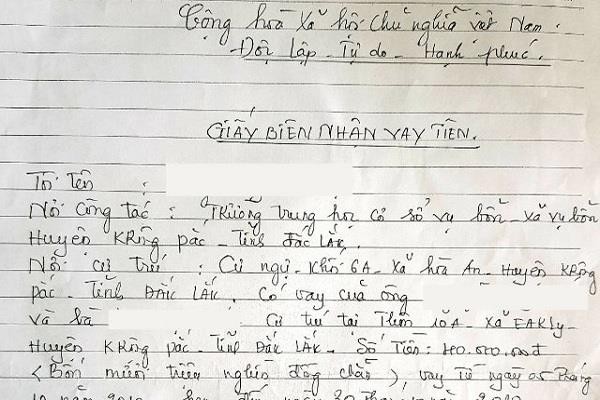 Cộng hoà Xã hội Chủ nghĩa việt Nam.
Độc lập - Tự do - Hạnh phúc.
GIẤY BIÊN NHẬN VAY TIỀN.
Tôi tên :
Nơi công tác : Trường trung học cơ sở vụ bổn - xã vụ bổn
Huyện KRông pắc - Tỉnh đắc Lắk.
Nơi cư trú : Cư ngụ - Khối 6A - Xã hòa An - Huyện KRông
pắc - Tỉnh ĐẮK LẮK. Có vay của ông
và bà Cư trú tại Thôn 10A - Xã EAKly -
Huyện KRông pắc - Tỉnh Đắk LẮK - Số Tiền: 40.000.000đ
(Bốn mươi triệu nghìn đồng chẵn), vay Từ ngày 05 tháng